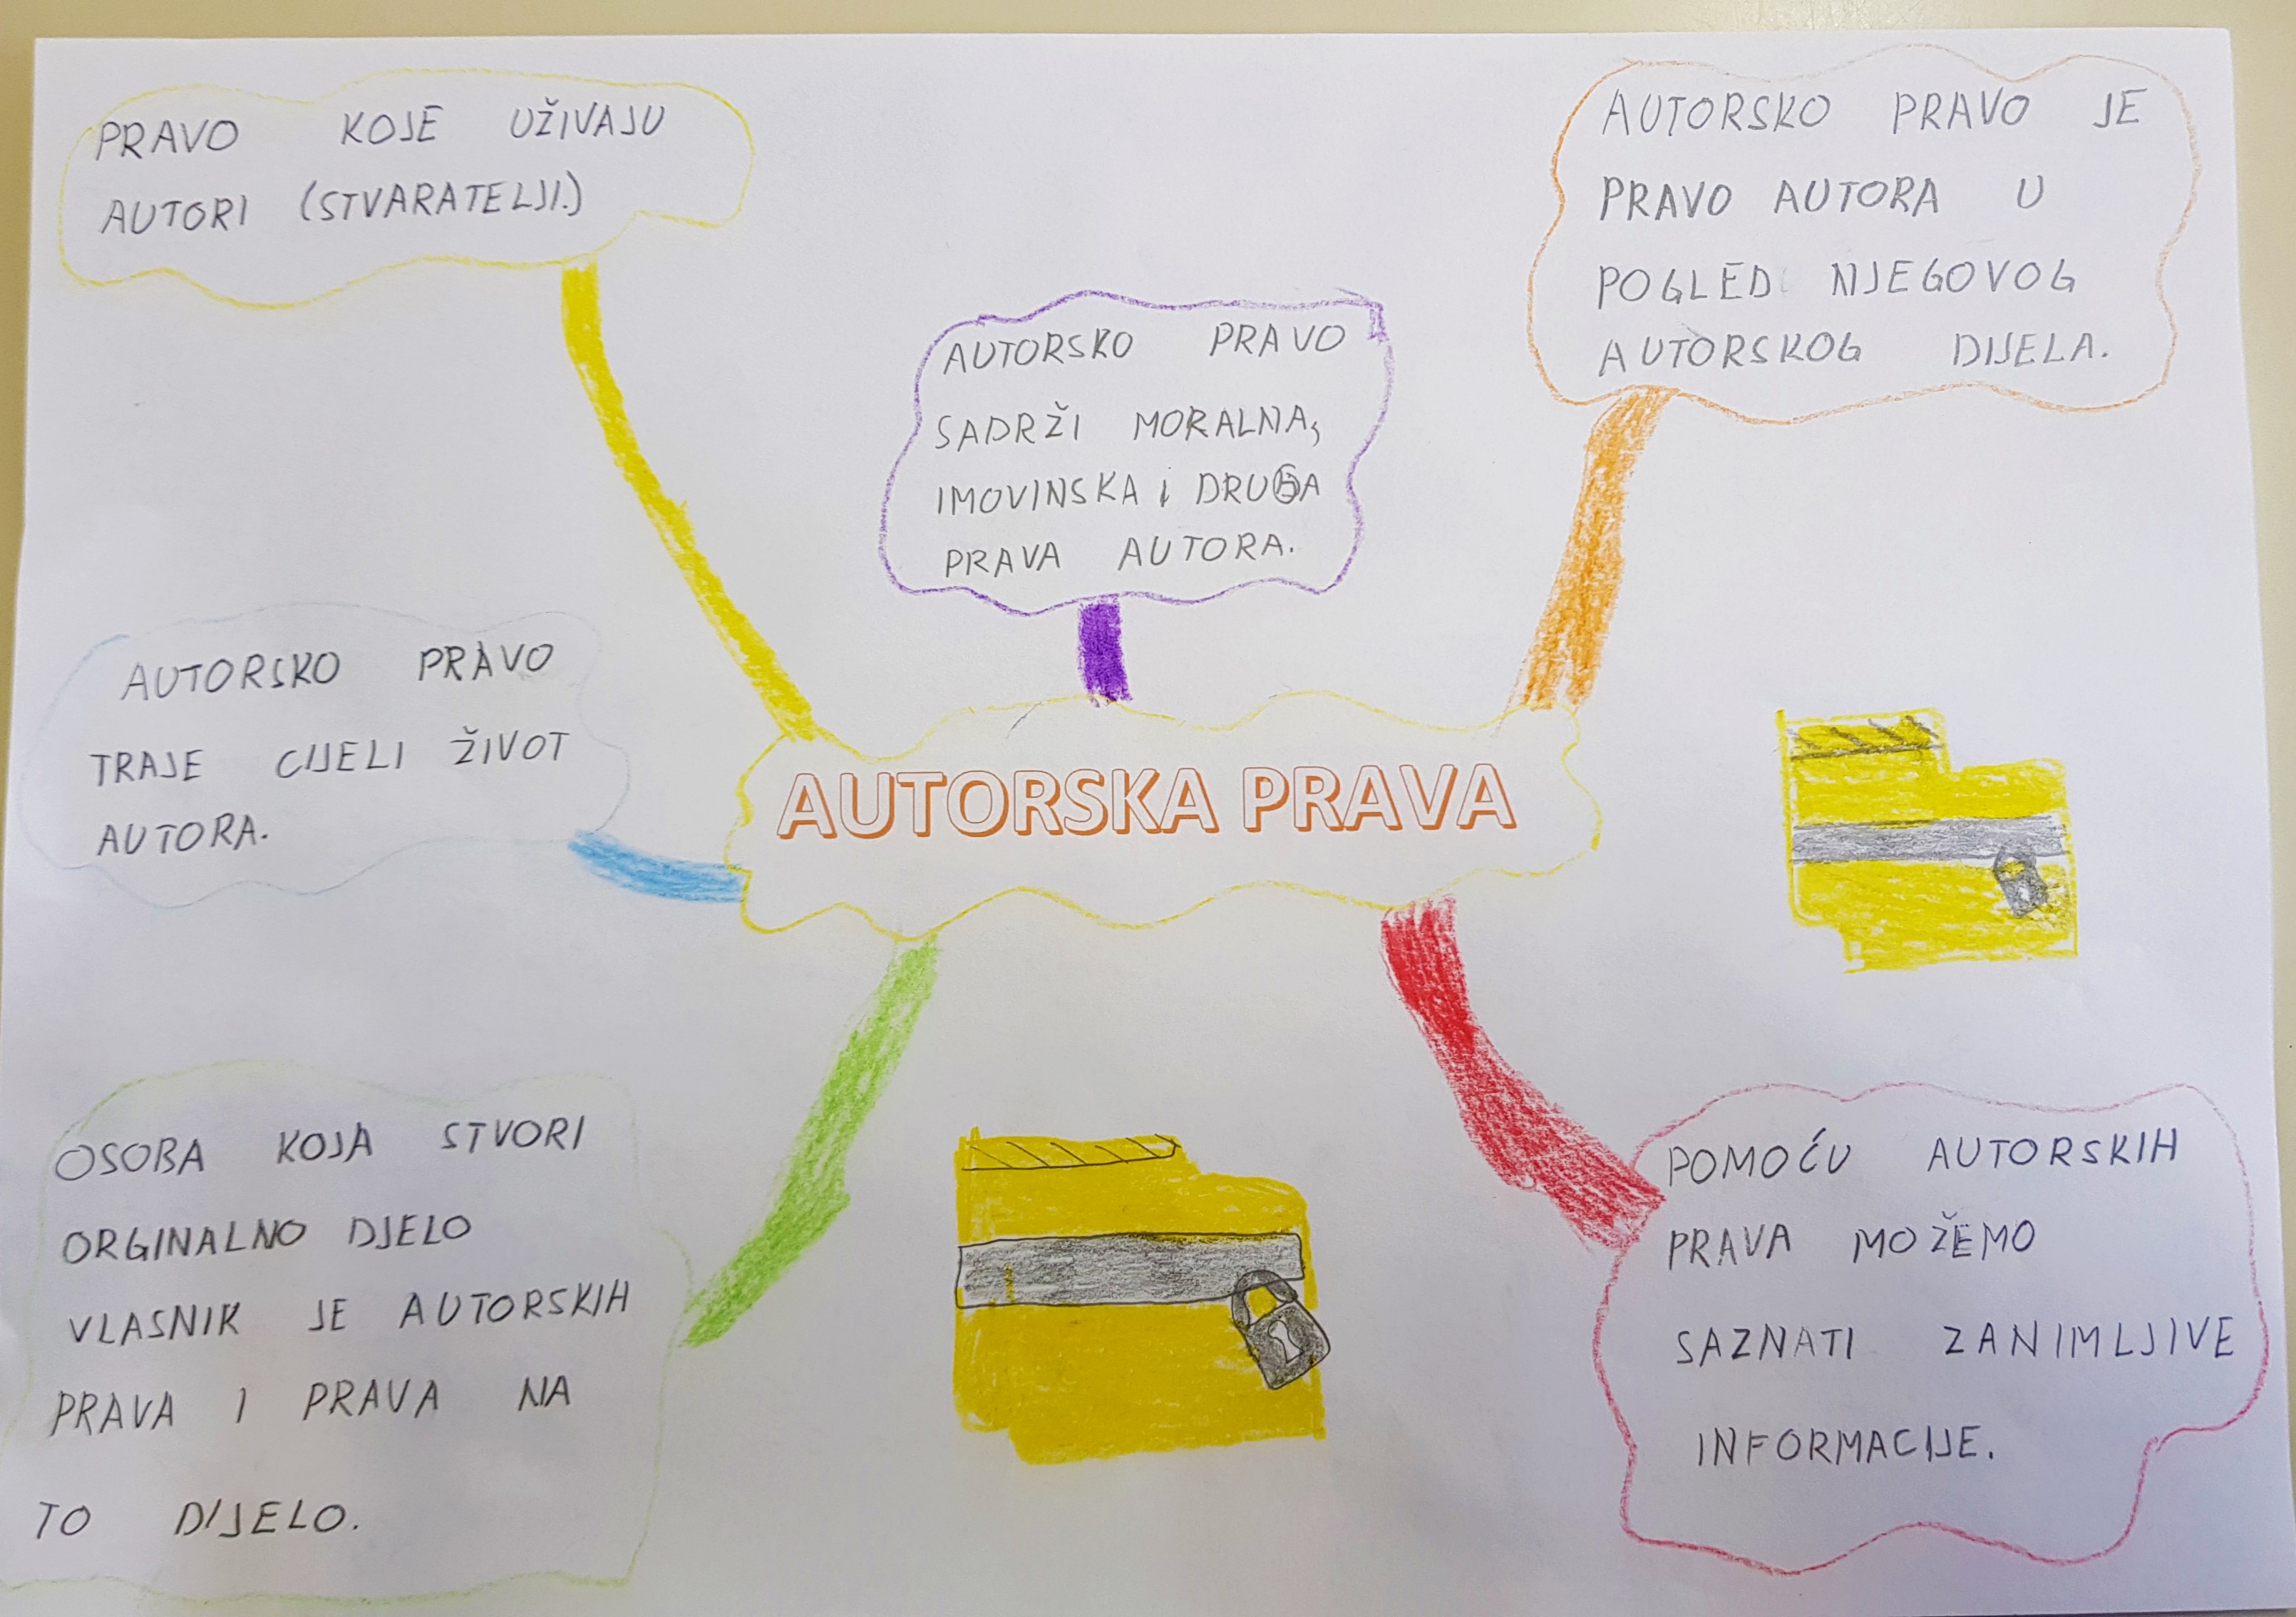 PRAVO KOJE UŽIVAJU
AUTORI (STVARATELJI.)
AUTORSKO PRAVO
SADRŽI MORALNA,
IMOVINSKA i DRUGA
PRAVA AUTORA.
AUTORSKO PRAVO JE
PRAVO AUTORA U
POGLED NJEGOVOG
AUTORSKOG DIJELA.
AUTORSKO PRAVO
TRAJE CIJELI ŽIVOT
AUTORA.
AUTORSKA PRAVA
OSOBA KOJA STVORI
ORGINALNO DJELO
VLASNIK JE AUTORSKIH
PRAVA I PRAVA NA
TO DIJELO.
POMOĆU AUTORSKIH
PRAVA MOŽEMO
SAZNATI ZANIMLJIVE
INFORMACIJE.